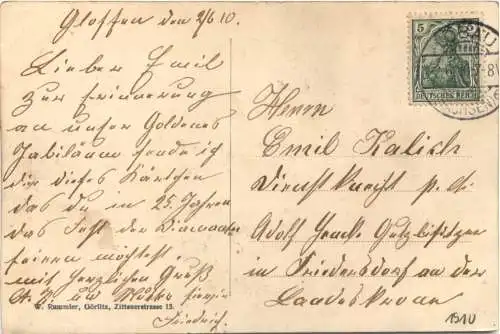 Glossen den 2/6 10.
Lieber Emil
Zur Erinnerung
an unser Goldenes
Jubiläum sende ich
dir dieses Kärtchen
das du in 25 Jahren
das Fest der Diamanten
feiern möchtest
mit herzlichen Gruß
Friedrich
W. Rummler, Görlitz, Zittauerstrasse 13.
5
DEUTSCHES REICH
Herrn
Emil Kalich
Dienstknecht p. A.
Adolf Gutsbesitzer
in Friedersdorf an der
Landeskrone
1910